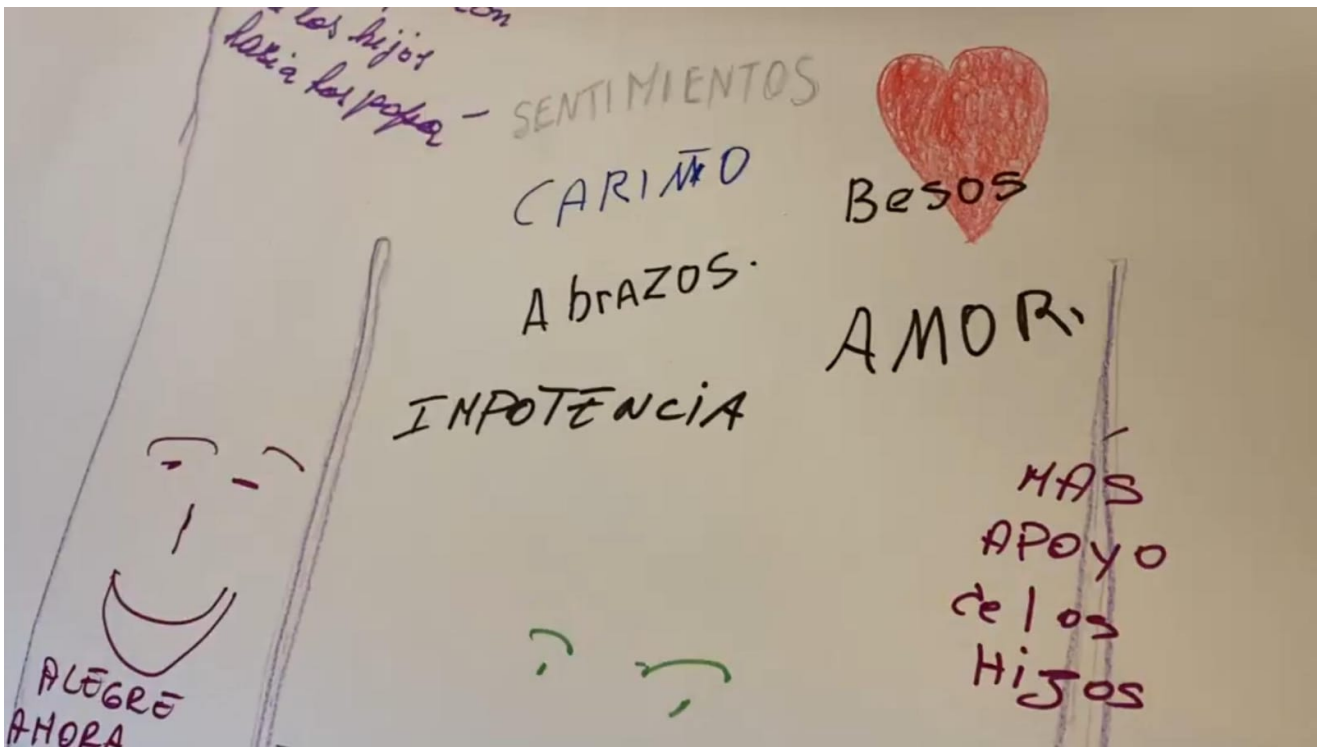 con
los hijos
hacia los papa -
SENTIMIENTOS
CARIÑO
Besos
AbrAZOS.
AMOR.
IMPOTENCiA
MÁS
APOYO
de los
HiJos
ALEGRE
AHORA